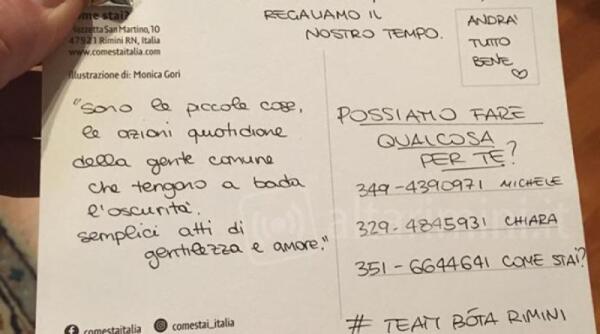 come stai?
Piazzetta San Martino, 10
47921 Rimini RN, Italia
www.comestaitalia.com
Illustrazione di: Monica Gori
"Sono le piccole cose,
le azioni quotidiane
della gente comune
che tengono a bada
l'oscurità.
semplici atti di
gentilezza e amore."
comestaitalia
comestai_italia
REGALIAMO IL
NOSTRO TEMPO.
ANDRA'
TUTTO
BENE
POSSIAMO FARE
QUALCOSA
PER TE?
349-4390971 MICHELE
329-4845931 CHIARA
351-6644641 COME STAI?
# TEAM BÓTA RIMINI